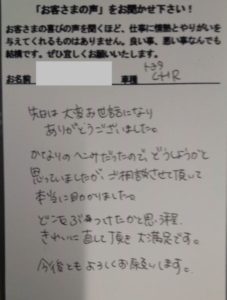 「お客さまの声」をお聞かせ下さい！
お客さまの喜びの声を聞くほど、仕事に情熱とやりがいを
与えてくれるものはありません。良い事、悪い事なんでも
結構です。ぜひ宜しくお願いいたします。
お名前 車種 トヨタ CHR
先日は大変お世話になり
ありがとうございました。
かなりのヘコみだったので、どうしようかと
思っていましたが、ご相談させて頂いて
本当に助かりました。
どこをぶつけたかと思う程、
きれいに直して頂き大満足です。
今後ともよろしくお願いします。